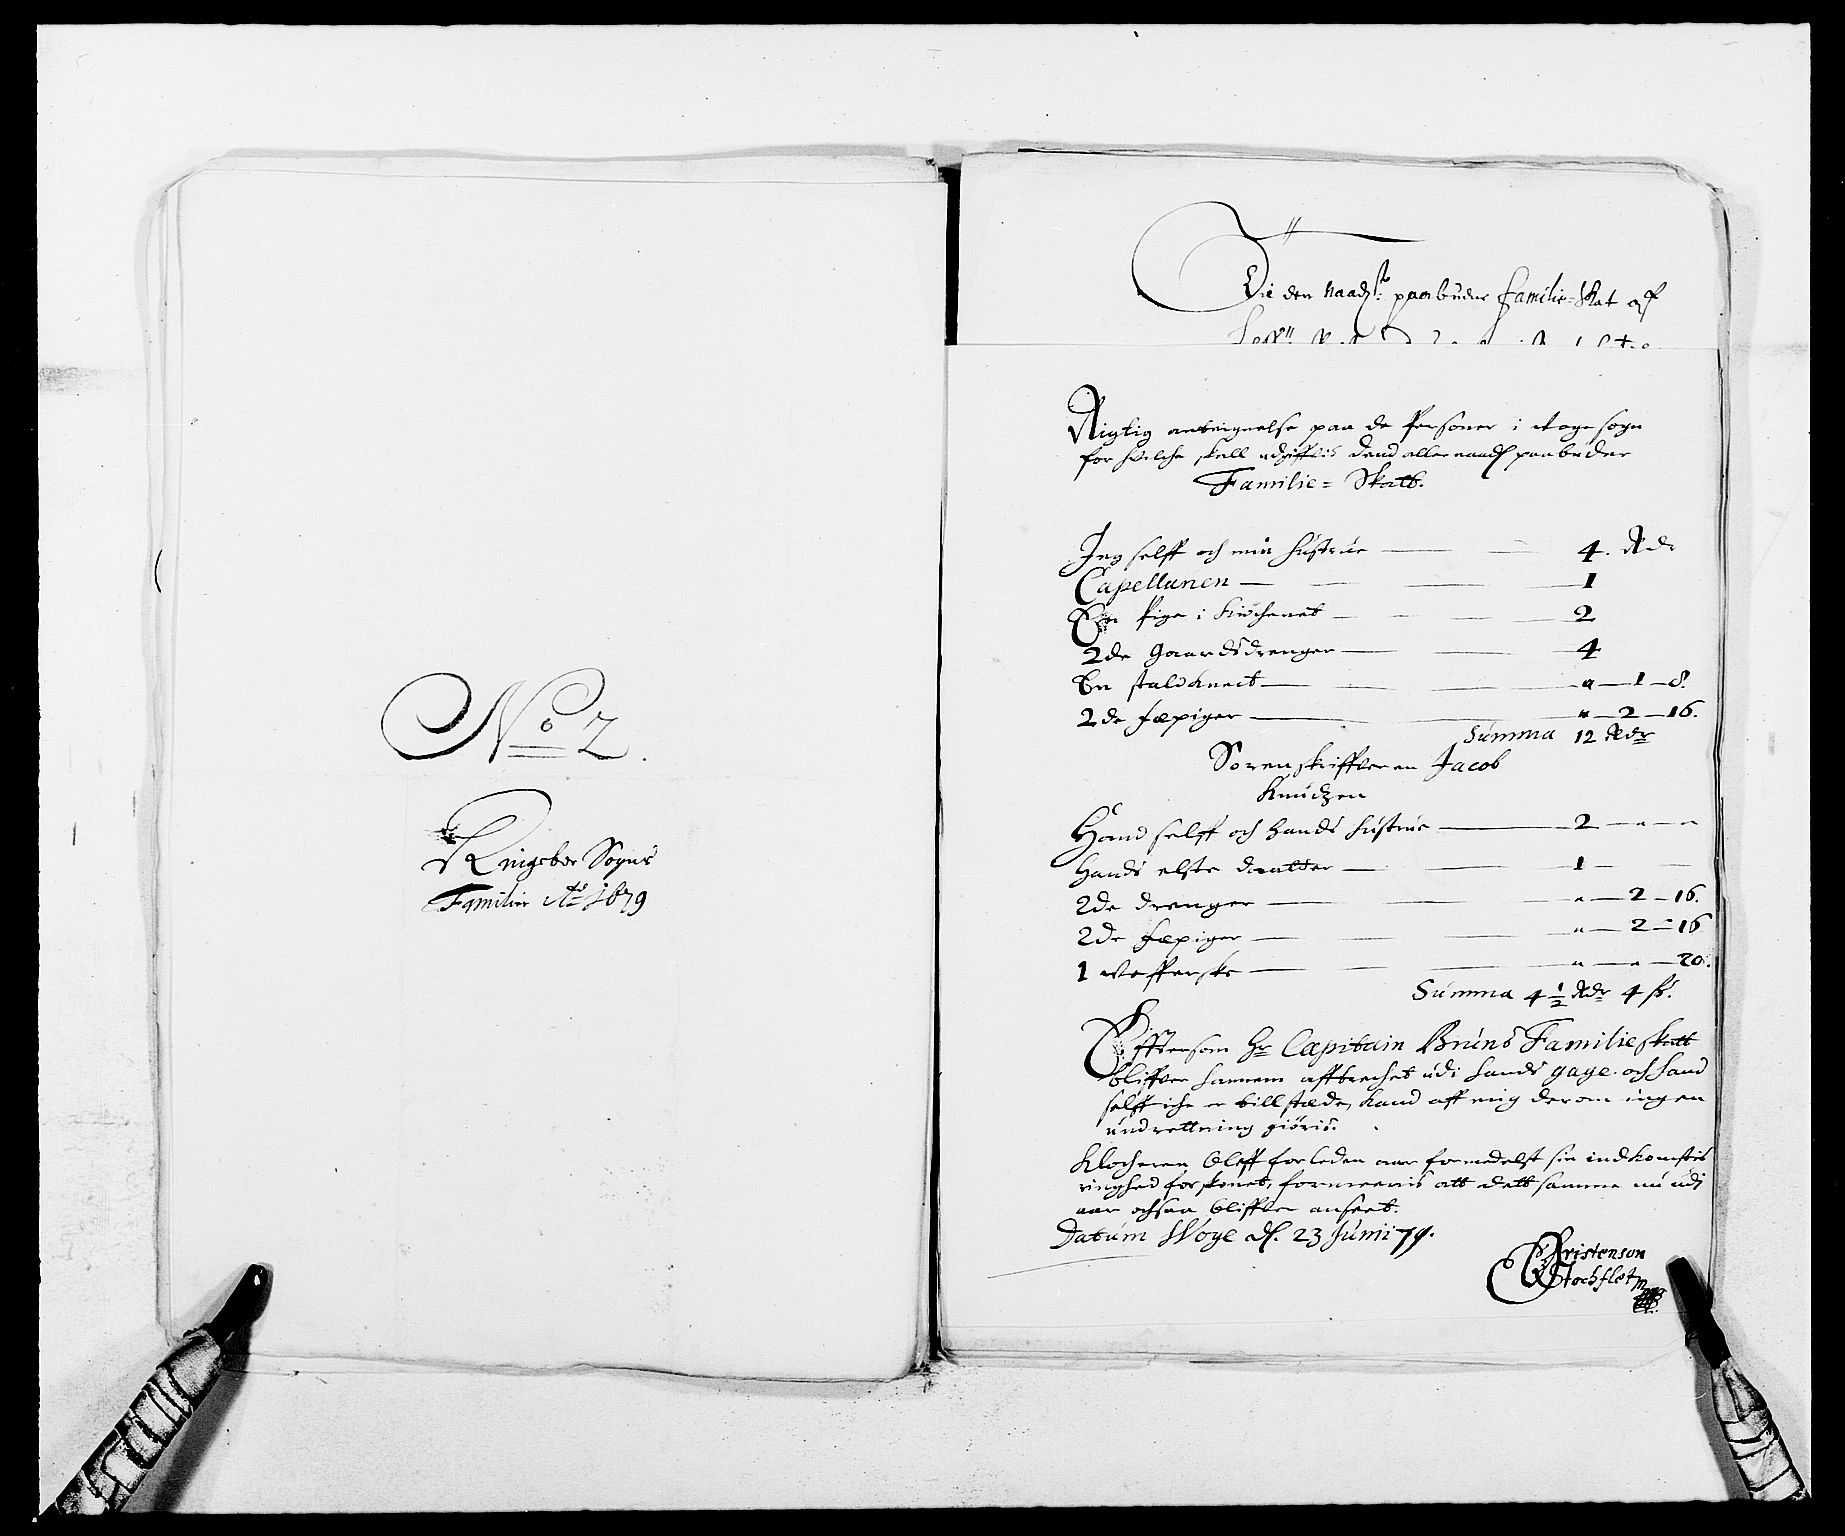 No 2.
Ringeboe Sogns
Familie Ao 1679
Die den naadst: paabudne familie-Skat aff
Rigtig anteignelse paa de Personer i Woge sogn
for hvilche skall udgiffvis dend allernaadst paabudne
Familie= Skatt.
Jeg selff och min hustrue 4. Rdr
Capellanen 1
En Pige i Kiöchenet 2
2de Gaardsdrenger 4
En staldknect " 1 8.
2de fæpiger " 2 16.
Summa 12 Rdr
Sorenskriffveren Jacob
Knudzen
Hand selff och hands hustrue 2 " "
hands elste daatter 1
2de drenger " 2 16.
2de fæpiger " 2 16
1 vefferske " " 20.
Summa 4 1/2 Rdr 4 ß.
Efftersom Hr Capitain Bruns Familieskatt
bliffver hannem affbrechet udi hands gage och hand
selff iche er tillstæde, kand aff mig derom ingen
undrettning giöris.
Klocheren bleff forleden aar formedelst sin indkomstis
ringhed forskonet, formeenis att dett samme nu udi
aar ochsaa bliffver anseet.
Datum Woge d. 23 Junii 79.
Christenson
Stochflet